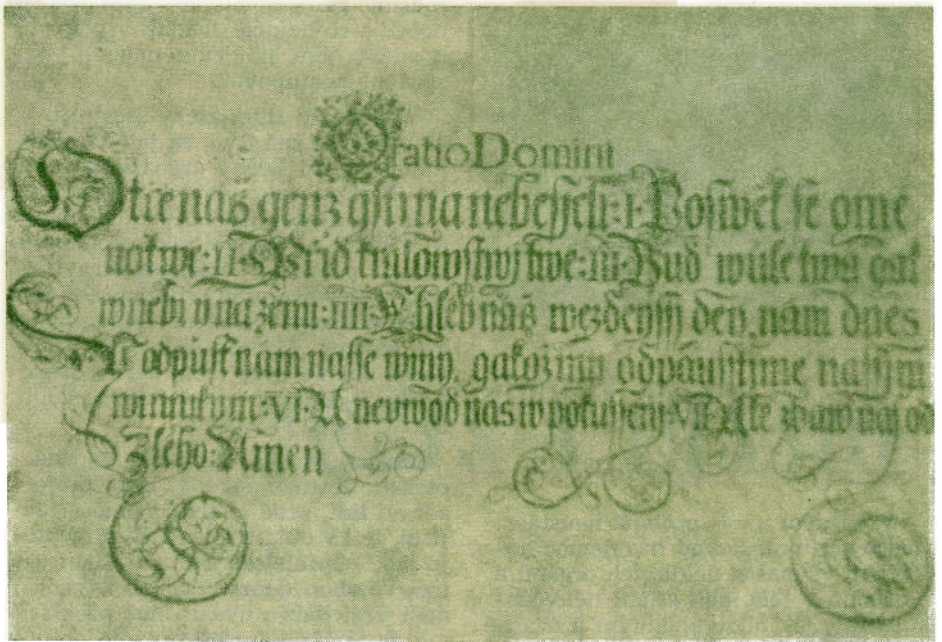 Oratio Domini
Otie naš genz gsy na nebesych: I · Poswěť se gme
no twe: II · Přiď kralowstwj twe: III · Buď wule twa gak
w nebi y na zemi: IIII · Chleb náš wezdeyssj dey nam dnes
V odpusť nam nasse winy, gakoz my odpaustime nassym
winnikum: VI · A neuwoď nas w pokussenj: VII · Ale zbaw nas od
Zleho: Amen